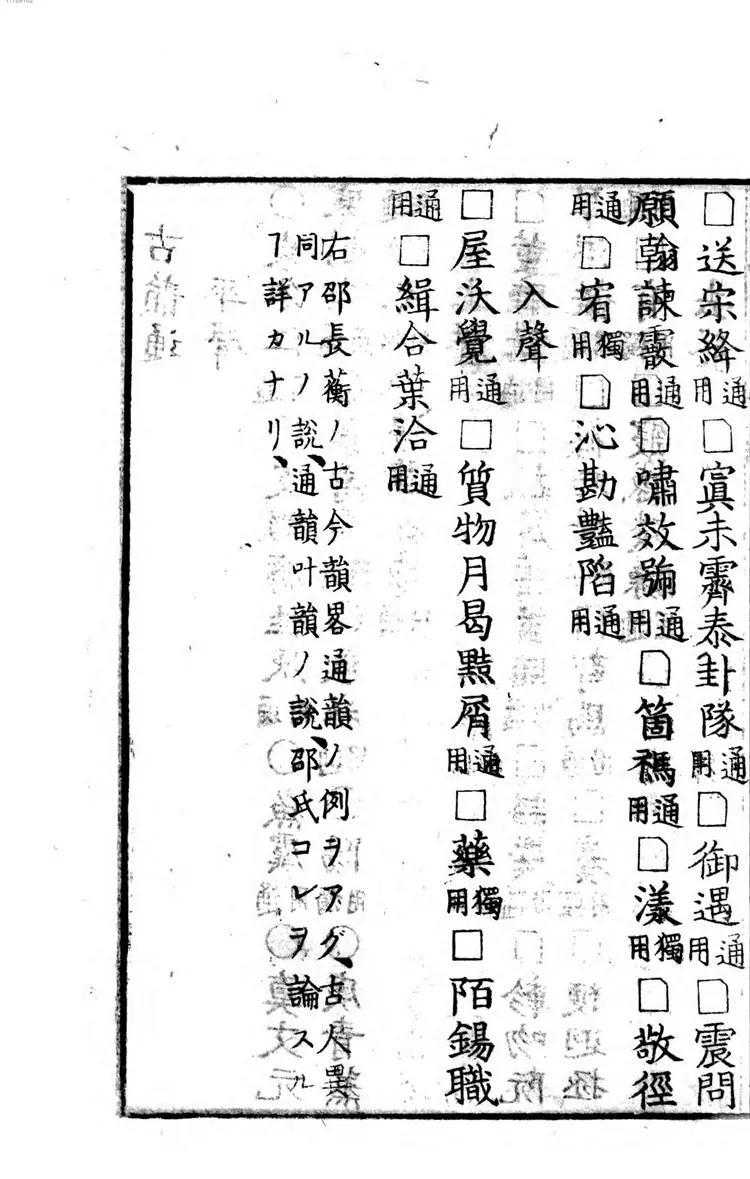 □送宋絳通用□寘未霽泰卦隊通用□御遇通用□震問
願翰諫霰通用□嘯效號通用□箇禡通用□漾獨用□敬徑
通用□宥獨用□沁勘豔陷通用
入聲
□屋沃覺通用□質物月曷黠屑通用□藥獨用□陌錫職
通用□緝合葉洽通用
右邵長蘅ノ古今韻畧通韻ノ例ヲアグ、古人異
同アルノ説、通韻叶韻ノ説、邵氏コレヲ論スル
ヿ詳カナリ、